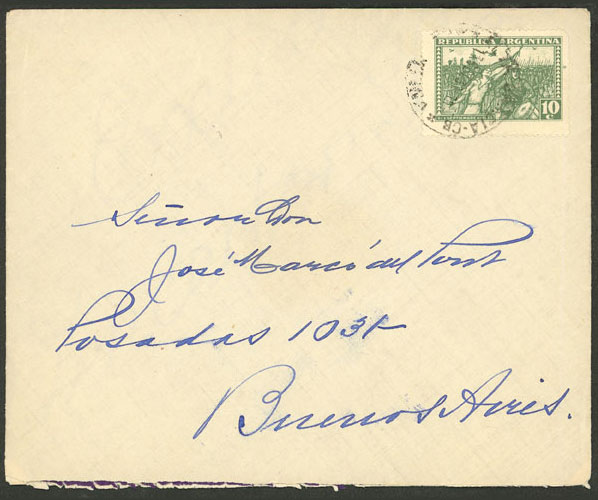 REPUBLICA ARGENTINA
10
c
Señor Don
José Marcó del Pont
Posadas 1031
Buenos Aires.